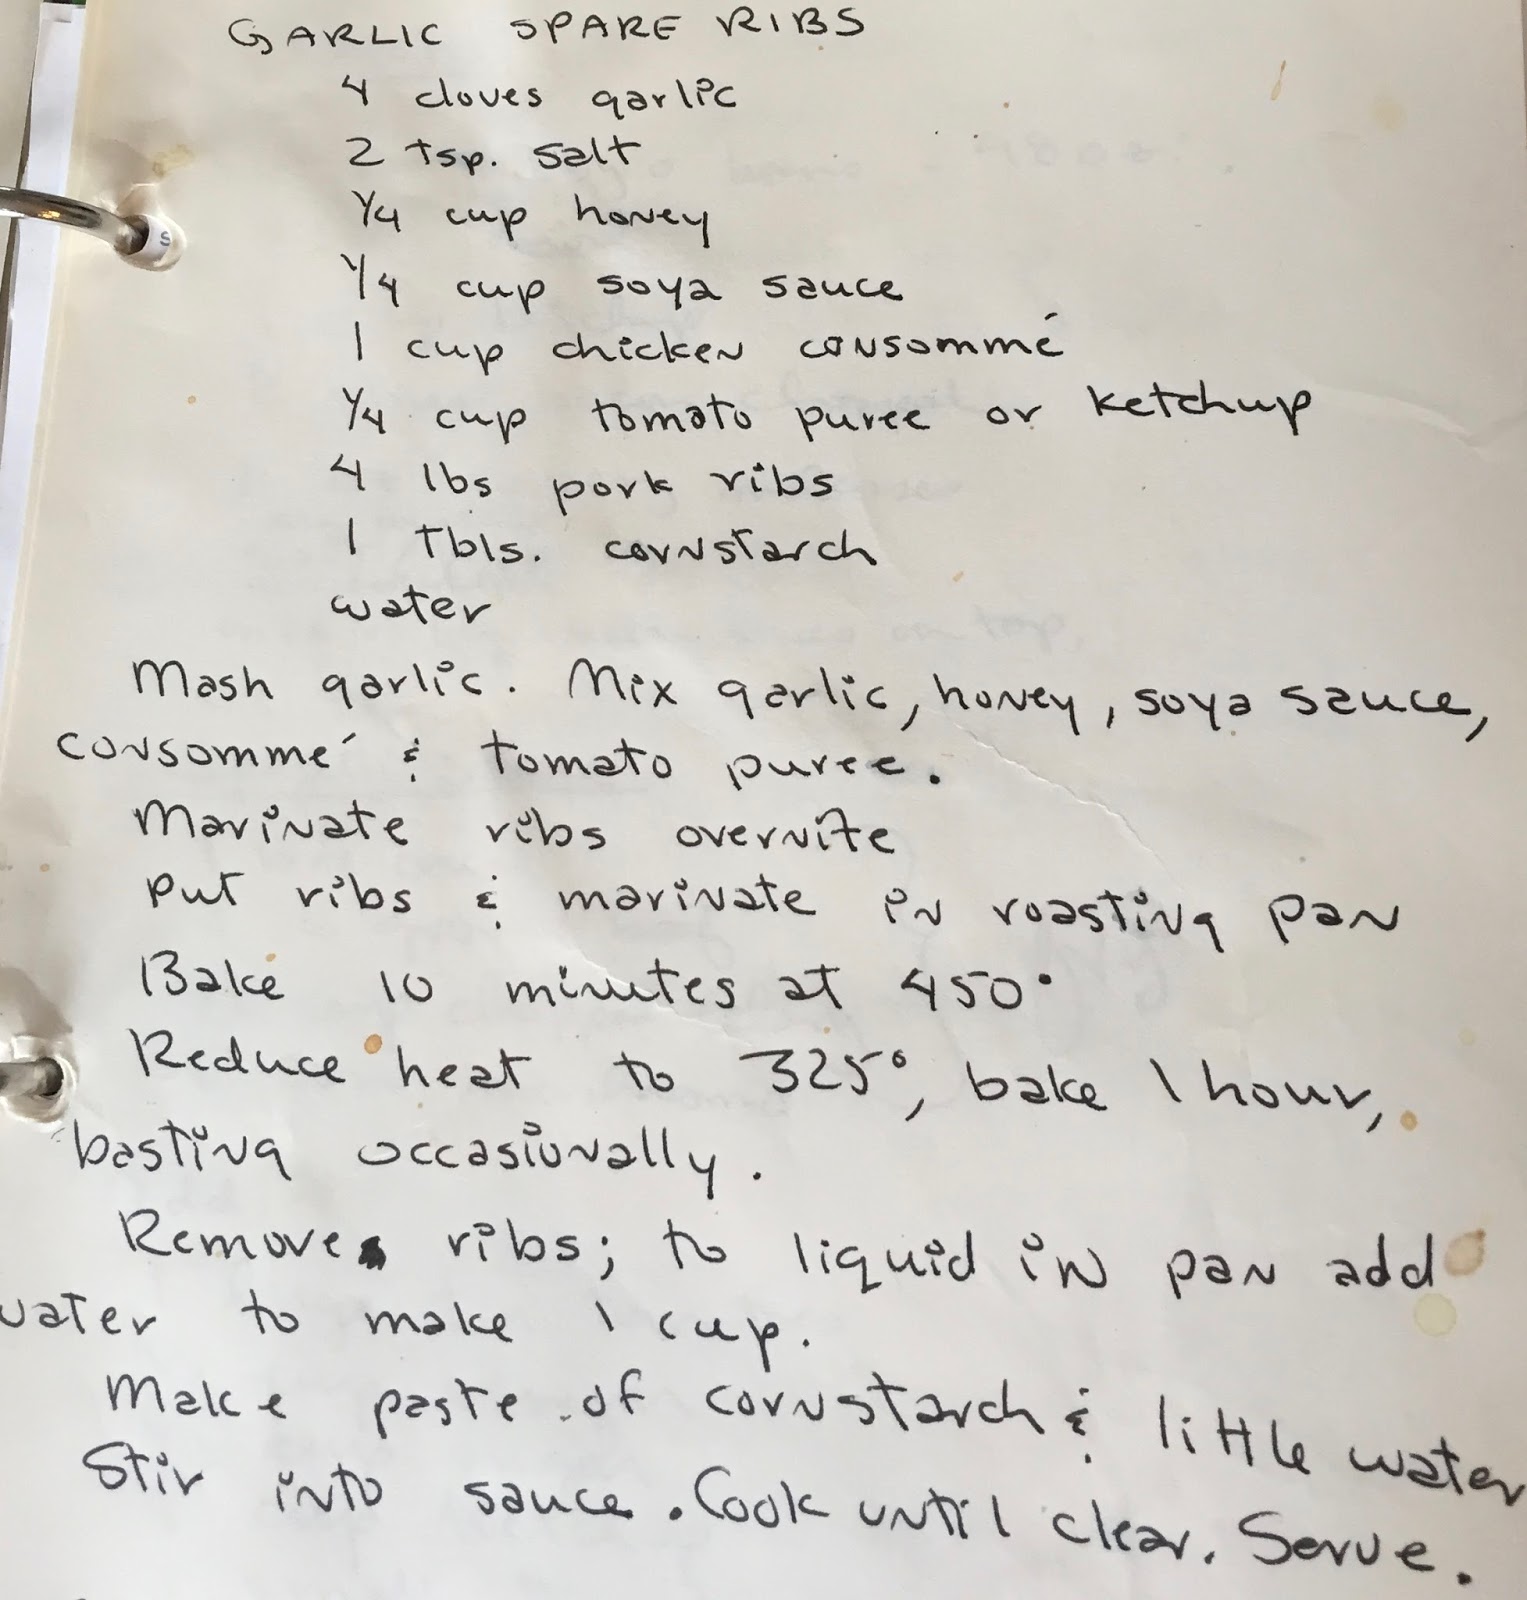 GARLIC SPARE RIBS
4 cloves garlic
2 tsp. salt
1/4 cup honey
1/4 cup soya sauce
1 cup chicken consommé
1/4 cup tomato puree or ketchup
4 lbs pork ribs
1 Tbls. cornstarch
water
Mash garlic. Mix garlic, honey, soya sauce,
consommé & tomato puree.
Marinate ribs overnite
Put ribs & marinate in roasting pan
Bake 10 minutes at 450°
Reduce heat to 325°, bake 1 hour,
basting occasionally.
Remove ribs; to liquid in pan add
water to make 1 cup.
Make paste of cornstarch & little water
Stir into sauce. Cook until clear. Serve.